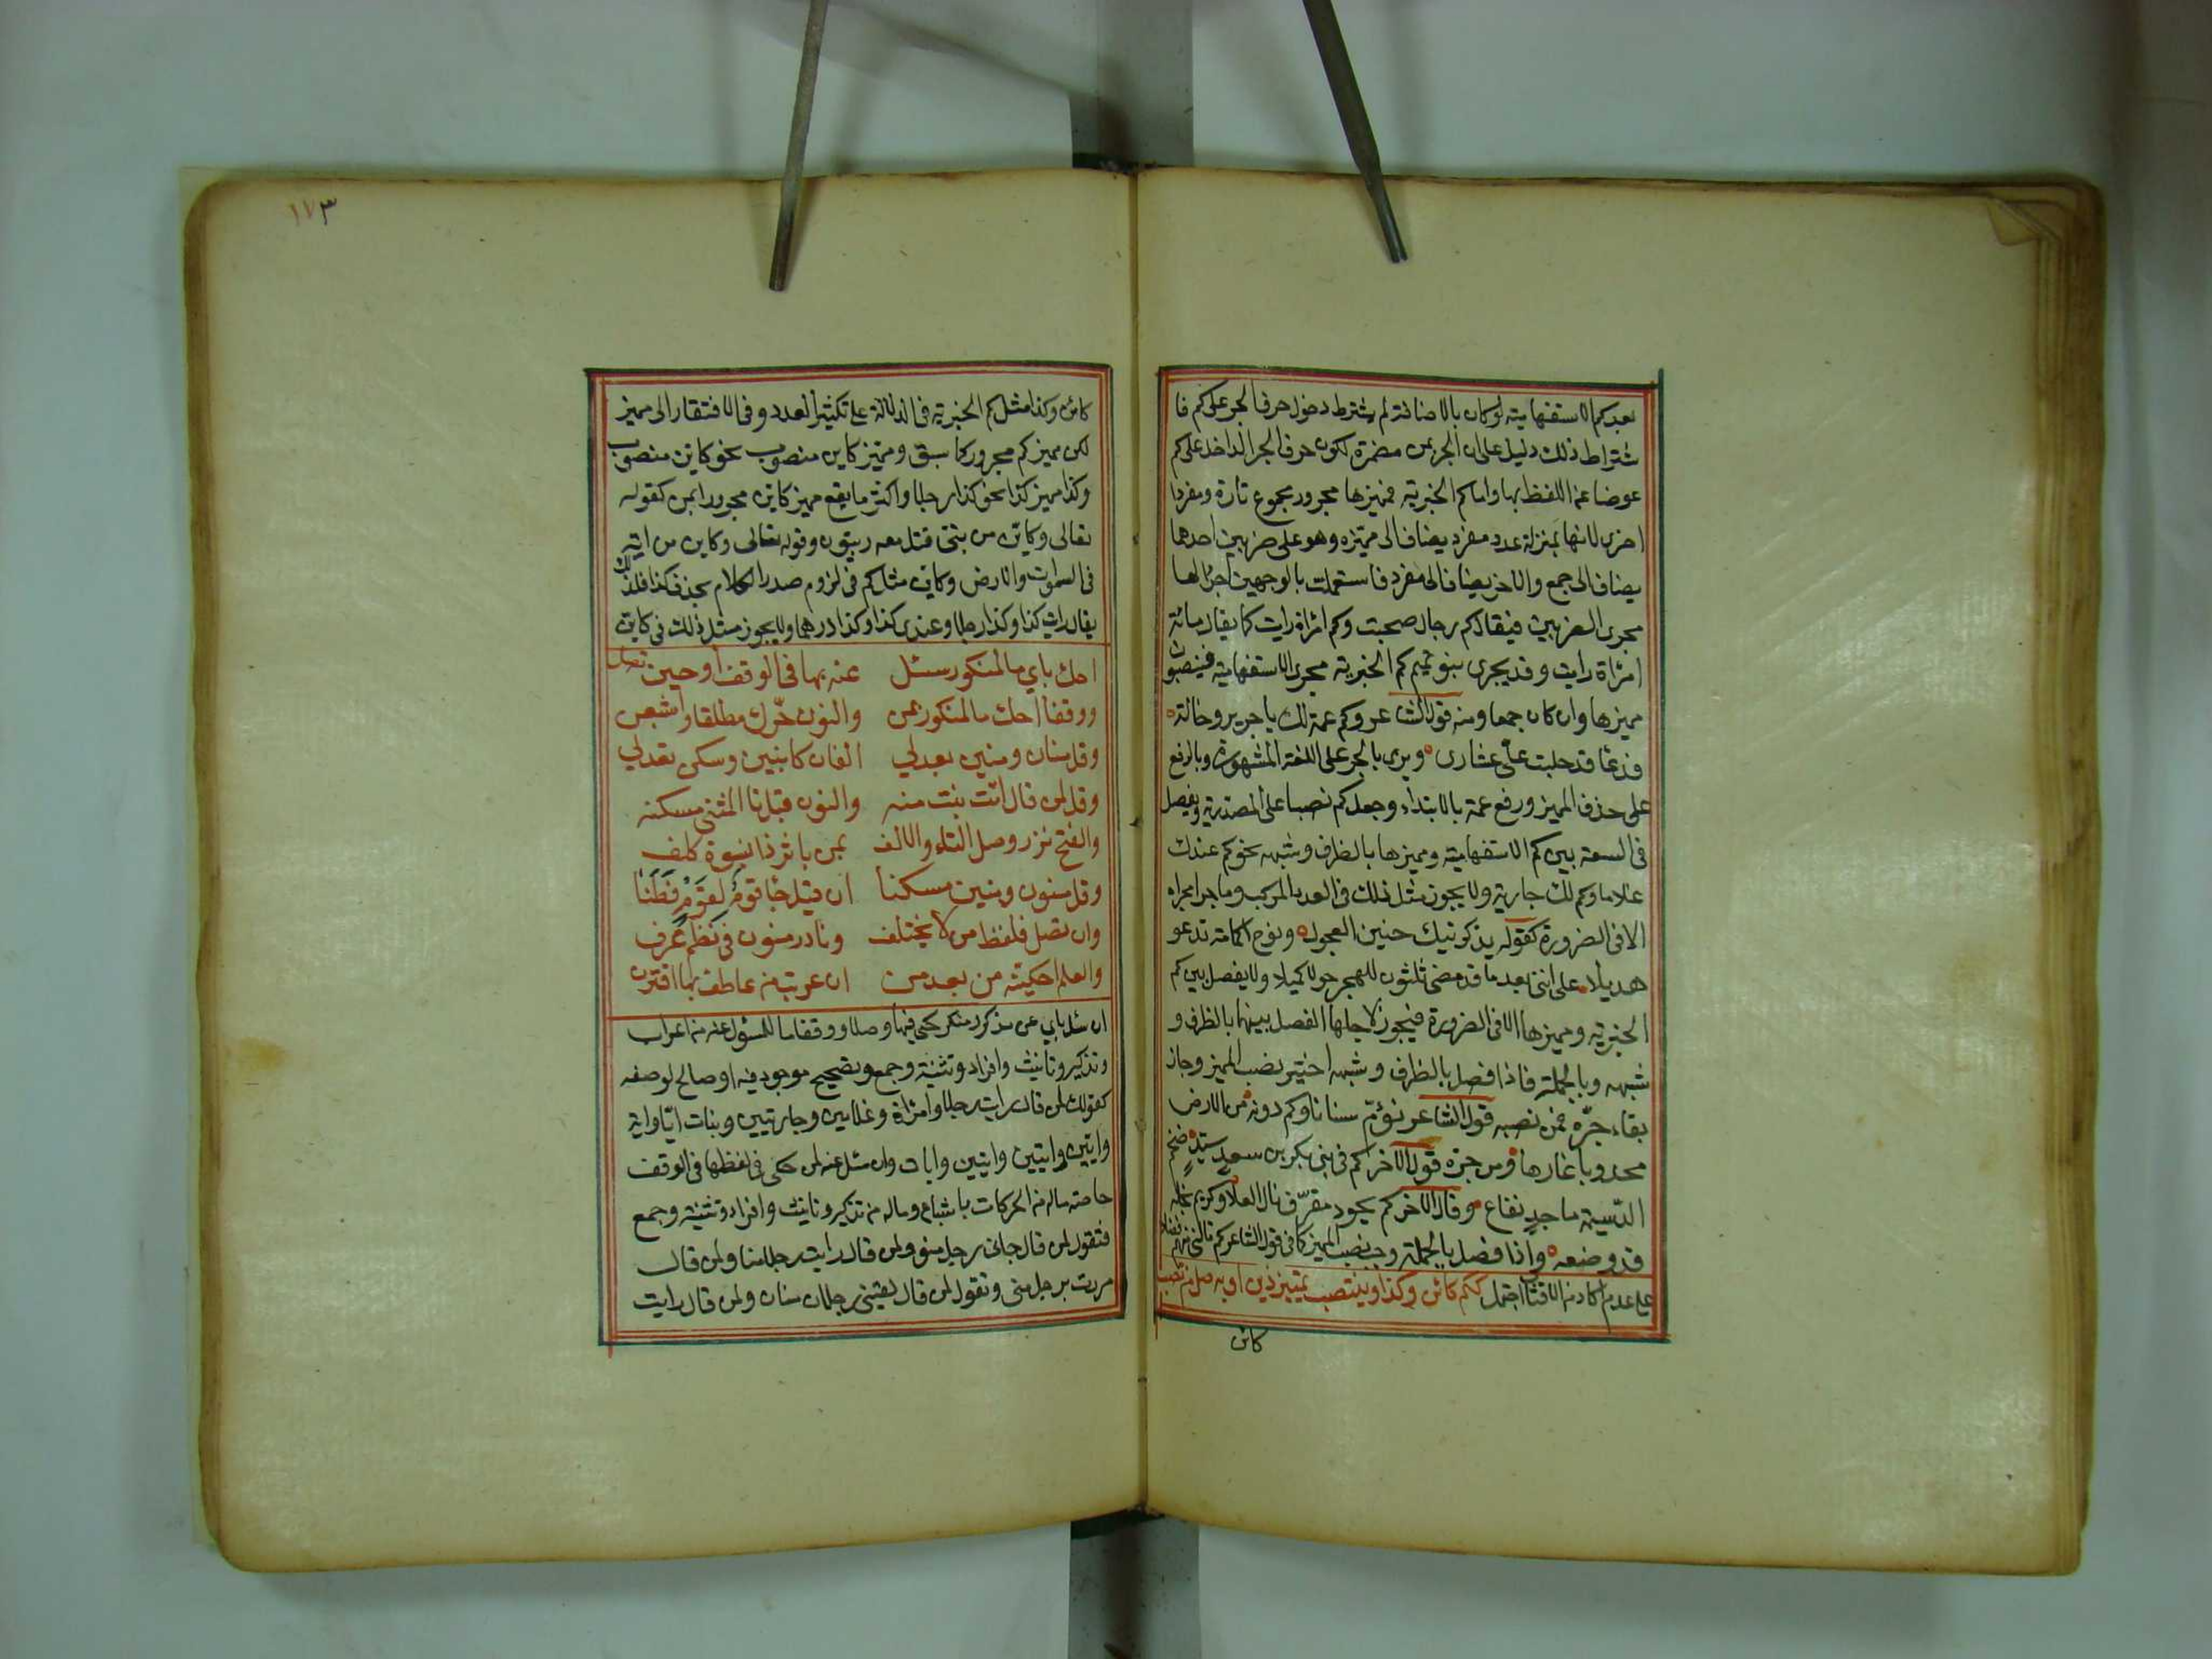 بعد كم الاستفهامية لو كان بالاضافة لم يشترط دخول حرف الجر على كم فا
شتراط ذلك دليل على ان الجر بمن مضمرة لكون حرف الجر الداخل على كم
عوضا عن اللفظ بها واما كم الخبرية فمميزها مجرور مجموع تارة ومفردا
اخرى لانها بمنزلة عدد مفرد يضاف الى مميزه وهو على ضربين احدهما
يضاف الى جمع والاخر يضاف الى مفرد فاستعملت بالوجهين اجرالها
مجرى الضربين فيقال كم رجال صحبت وكم امراة رايت كما يقال مائة
امراة رايت وقد يجرى بنو تميم كم الخبرية مجرى الاستفهامية فينصبون
مميزها وان كان جمعا ومنه قول الشاعر وكم عمة لك يا جرير وخالة
فدعا قد حلبت علي عشارى ويروى بالجر على اللغة المشهورة وبالرفع
على حذف المميز ورفع عمة بالابتداء وجعل كم نصبا على المصدرية ويفصل
فى السعة بين كم الاستفهامية ومميزها بالظرف وشبهه نحو كم عندك
غلاما وكم لك جارية ولا يجوز مثل ذلك فى العدد المركب وما جرا مجراه
الا فى الضرورة كقوله يذكرنيك حنين العجول ونوح الحمامة تدعو
هديلا على اننى بعد ما قد مضى ثلثون للهجر حولا كميلا ولا يفصل بين كم
الخبرية ومميزها الا فى الضرورة فيجوز لاجلها الفصل بينهما بالظرف و
شبهه وبالجملة فاذا فصل بالظرف وشبهه اختير نصب المميز وجاز
بقاء جرّه فمن نصبه قول الشاعر تؤمّ سنانا وكم دونه من الارض
محدودبا غارها ومن جره قول الاخر كم فى بنى بكر بن سعد سيد ضخم
الدسيعة ماجد نفاع وقال الاخر كم بجود مقرف نال العلا وكريم بخله
قد وضعه واذا فصل بالجملة وجب نصب المميز كما فى قول الشاعر كم نالنى منهم فضلا
على عدم اذ لا اكاد من الاقتار احتمل ككم كائن وكذا وينتصب تمييز ذين او به صل من تصب
كائن
١٧٣
كائن وكذا مثل كم الخبرية فى الدلالة على تكثير العدد وفى الافتقار الى مميز
لكن مميز كم مجرور كما سبق ومميز كاين منصوب نحو كاين منصوب
وكذا مميز كذا نحو كذا رجلا واكثر ما يقع مميز كاين مجرورا بمن كقوله
تعالى وكاين من نبى قتل معه ربيون وقوله تعالى وكاين من اية
فى السموات والارض وكاين مثل كم فى لزوم صدر الكلام بخلاف كذا فلذلك
يقال رايت كذا وكذا رجلا وعندى كذا وكذا درهما ولا يجوز مثل ذلك فى كاين
احك باي ما لمنكور سئل عنه بها فى الوقف اوحين تصل
ووقفا احك ما لمنكور بمن والنون حرّك مطلقا واشبعن
وقل منان ومنين بعد لي الفان كابنين وسكن تعدل
وقل لمن قال اتت بنت منه والنون قبل تا المثنى مسكنه
والفتح نزر وصل التاء والالف بمن باثر ذا بنسوة كلف
وقل منون ومنين مسكنا ان قيل جا قوم لقوم فطنا
وان تصل فلفظ من لا يختلف ونادر منون فى نظم عرف
والعلم احكينه من بعد من ان عريت من عاطف بها اقترن
ان سئل باي عن مذكور منكر حكى فيها وصلا ووقفا ما للمسؤل عنه من اعراب
وتذكير وتانيث وافراد وتثنية وجمع وتصحيح موجود فيه او صالح لوصفه
كقولك لمن قال رايت رجلا وامراة وغلامين وجاريتين وبنات ايّا واية
وايين وايتين وايين وايات وان سئل عنه بمن حكى فى لفظها فى الوقف
خاصة ماله من الحركات باشباع وماله من تذكير وتانيث وافراد وتثنية وجمع
فتقول لمن قال جانى رجل منو ولمن قال رايت رجلا منا ولمن قال
مررت برجل منى وتقول لمن قال لقينى رجلان منان ولمن قال رايت